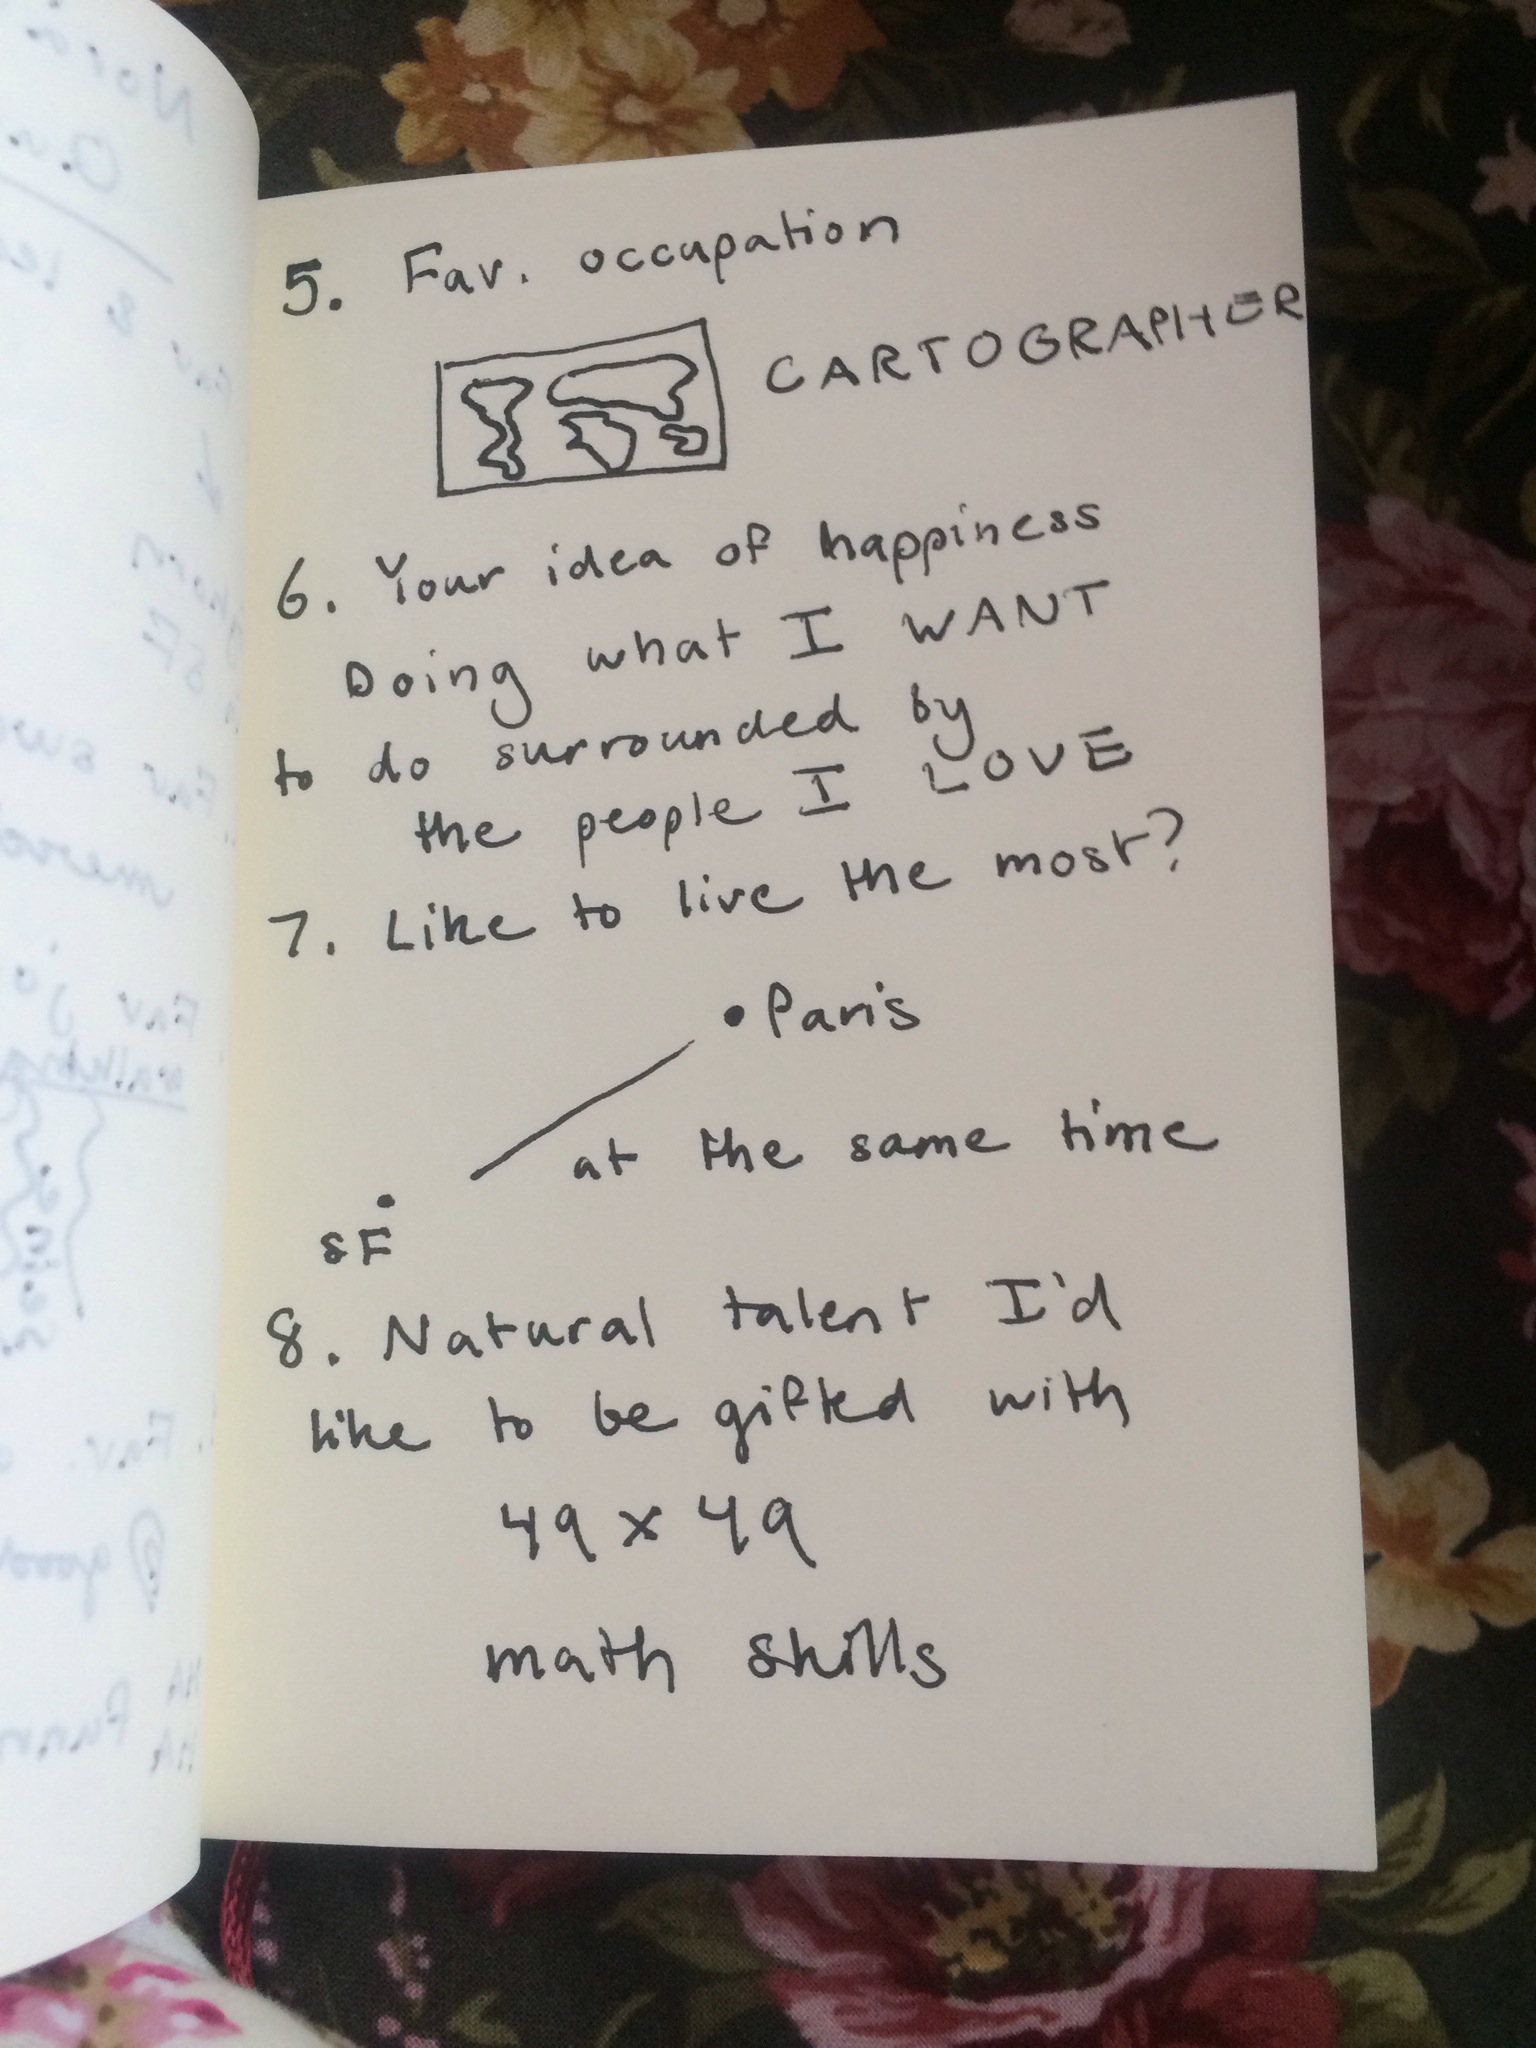 5. Fav. occupation
CARTOGRAPHER
6. Your idea of happiness
Doing what I WANT
to do surrounded by
the people I LOVE
7. Like to live the most?
Paris
at the same time
SF
8. Natural talent I'd
like to be gifted with
49 x 49
math skills